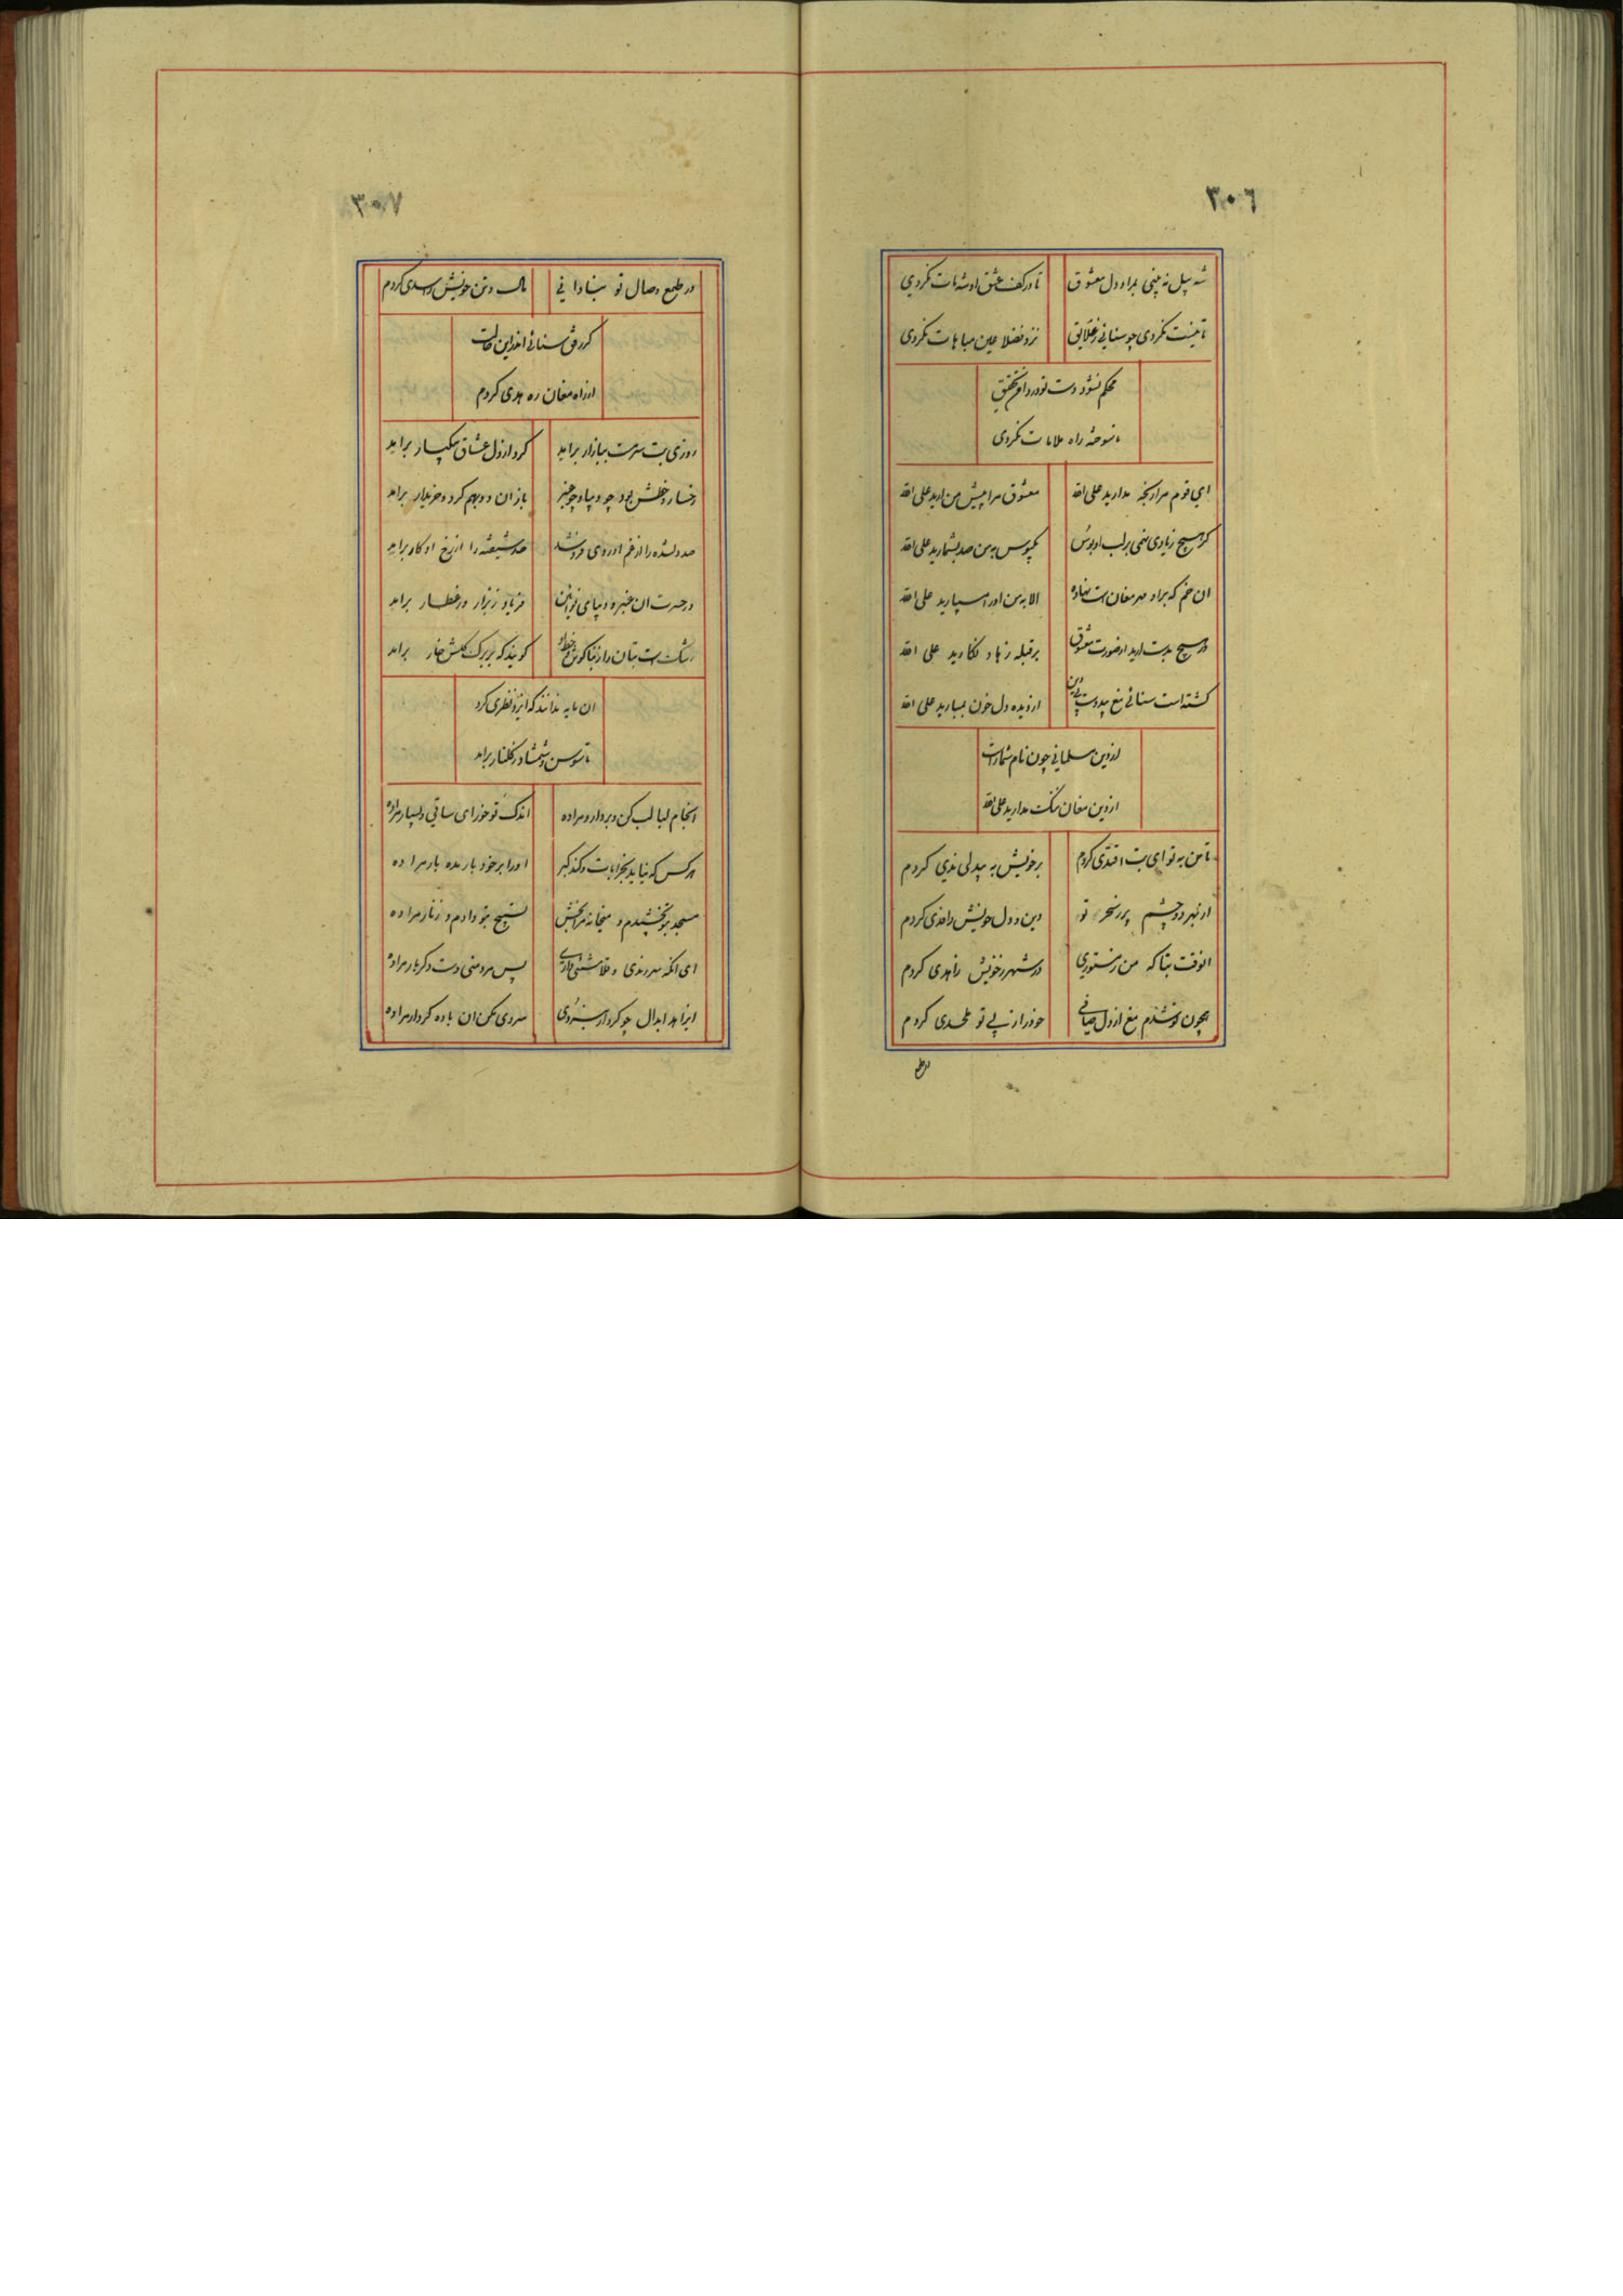 ٣٠٦
شه پیل نه بینی بمراد دل معشوق
تا در کف عشق او شه مات نکردی
تا نیست نکردی چو سنایی ز علایق
نزد فضلا عین مباهات نکردی
محکم نشود دست تو در دامن تحقیق
تا سوخته راه ملامات نکردی
ای قوم مرا رنجه مدارید علی الله
معشوق مرا پیش من ارید علی الله
کر هیچ زیادی نهمی بر لب او بوس
یکبوس به من صد بشمارید علی الله
ان خم که براو مهر مغان است نهاده
الا به من او را مسپارید علی الله
ور هیچ بدست ارید از صورت معشوق
بر قبله زهاد نکارید علی الله
کشته است سنائی مغ بیدولت بیدین
از دیده و دل خون بمبارید علی الله
در دین مسلمانی چون نام شماراست
از دین مغان ننگ مدارید علی الله
تا من به تو ای بت اقتدی کردم
بر خویش به بیدلی ندی کردم
از بهر دو چشم پر ز سحر تو
دین و دل خویش را فدی کردم
انوقت بتا که من ز مستوری
در شهر ز خویش زاهدی کردم
همچون تو شدم مغ از دل صافی
خود را ز پی تو ملحدی کردم
در طمع
٣٠٧
در طمع وصال تو بنادانی
مال و تن خویش را سدی کردم
کر رفت سنائی اندرین حالت
از راه مغان ره هدی کردم
روزی بت سرمست ببازار برامد
کرد از دل عشاق بیکبار برامد
رخسار و خطش بود چو دیبا و چو عنبر
باز ان دو بهم کرد و خریدار برامد
صد دلشده را از غم او روی فروشد
صد شیفته را از رخ او کار برامد
در حسرت ان عنبر و دیبای نوائین
فریاد ز بزاز و ز عطار برامد
رشک ست بتان را ز بناکوش و خط او
کویند که بر برک کلش خار برامد
ان مایه ندانند که ایزد نظری کرد
تا سوسن و شمشاد ز کلنار برامد
انجام لبالب کن و بردار و مرا ده
اندک تو خور ای ساقی و بسیار مرا ده
هر کس که نیاید بخرابات و کند کبر
او را بر خود بار مده بار مرا ده
مسجد بتو بخشیدم و میخانه مرا بخش
تسبیح بتو دادم و زنار مرا ده
ای انکه سر رندی و قلاشی داری
پس مرد منی دست دکر بار مرا ده
ای زاهد ابدال چو کردار بردی
سردی مکن ان باده کردار مرا ده